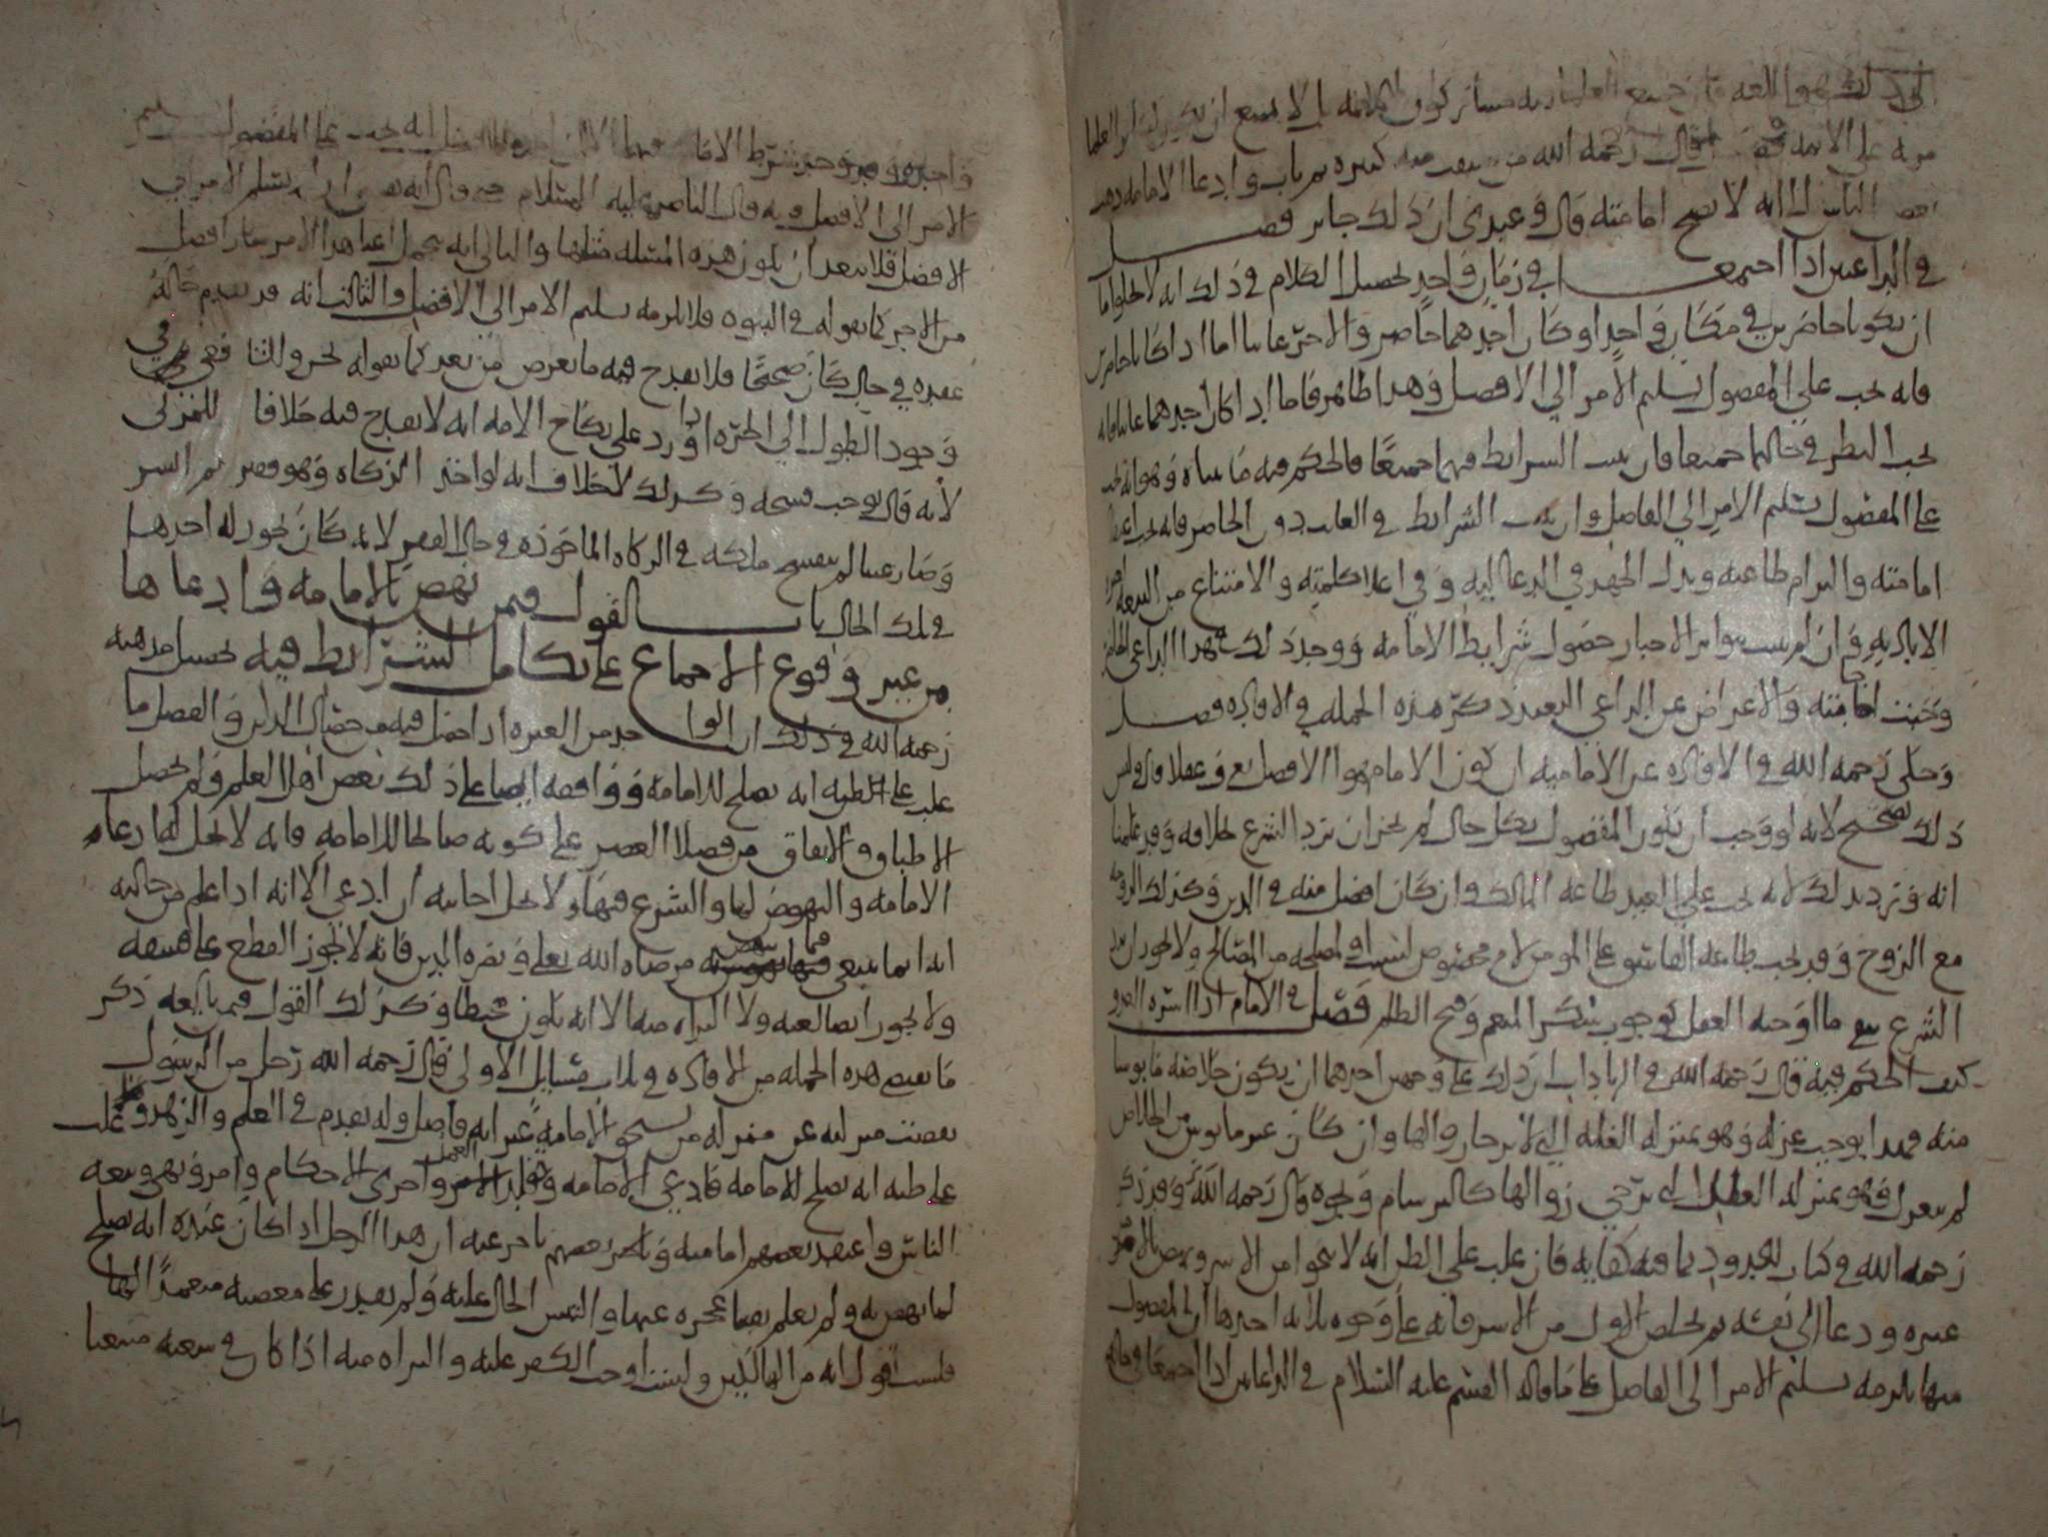 مزية على الأئمة فصل قال رحمه الله من كبيرة ثم تاب وادعا الامامة ذهب
بعض الناس الى انه لا تصح امامته قال وعندي ان ذلك جائز فصل
في الداعيين اذا اجتمعا في زمان واحد تحصيل الكلام في ذلك انه لا يخلو اما
ان يكونا حاضرين في مكان واحد او كان احدهما حاضر والاخر غائبا اما اذا كانا حاضرين
فانه يجب على المفضول تسليم الامر الى الافضل وهذا ظاهر فاما اذا كان احدهما غائبا فانه
يجب النظر في حالهما جميعا فان ثبت الشرائط فيهما جميعًا فالحكم فيه ما بيناه وهو انه يجب
على المفضول تسليم الامر الى الفاضل وان ثبت الشرائط في الغائب دون الحاضر فانه يجب اعتقاد
امامته والتزام طاعته وبذل الجهد في الدعا اليه وفي اعلا كلمته والامتناع من البيعة
وان لم يثبت بتواتر الاخبار حصول شرائط الامامة ووجد ذلك في هذا الداعي الحاضر
وجبت اجابته والاعراض عن الداعي البعيد ذكر هذه الجملة في الافادة فصل
وحكى رحمه الله في الافادة عن الامامية ان كون الامام هو الافضل يعرف عقلا قال وليس
ذلك بصحيح لانه لو وجب ان يكون المفضول بكل حال لم يجز ان يرد الشرع بخلافه وقد علمنا
انه ورد بذلك لانه يجب على العبد طاعة المالك وان كان افضل منه في الدين وكذلك الزوجة
مع الزوج وقد يجب طاعة الفاسق على المؤمن لامر مخصوص لسبب او لمصلحة من المصالح ولا يجوز ان يرد
الشرع برفع ما اوجبه العقل كوجوب شكر المنعم وقبح الظلم فصل في الامام اذا اسره العدو
كيف الحكم فيه قال رحمه الله في الزيادات ان ذلك على وجهين احدهما ان يكون خلاصه مايوسا
منه فهذا يوجب عزله وهو بمنزلة العلة التي لا يرجا زوالها وان كان غير مايوس من الخلاص
لم ينعزل وهو بمنزلة العلل التي يرتجى زوالها كالبرسام ونحوه قال رحمه الله وقد ذكر
رحمه الله في كتاب الحدود ما فيه كفاية فان غلب على الظن انه لا ينجوا من الاسر ونهض بالامر
غيره ودعا الى نفسه ثم تخلص الاول من الاسر فانه على وجوه ثلاثة احدها ان المفضول
منهما يلزمه تسليم الامر الى الفاضل على ما قاله القسم عليه السلام في الداعيين اذا اجتمعا
الامر الى الافضل وبه قال الناصر عليه السلام
الافضل فلا يبعد ان يكون هذه المسئلة مثلها والثاني انه يحمل اعبا هذا الامر صار افضل
من الاخر كما نقوله في النبوة فلا يلزمه تسليم الامر الى الافضل والثالث انه قد تقدم حاله
عقده في حال كان صحيحًا فلا يقدح فيه ما يعرض من بعد كما نقوله نحن والشافعي في
وجود الطول الى الحرة اذا ورد على نكاح الامة انه لا يقدح فيه خلافا للمزني
لانه قال يوجب فسخه وكذلك لا خلاف انه لو اخذ الزكاة وهو فقير ثم ايسر
وصار غنيا لم ينفسخ ملكه في الزكاة الماخوذة في حال الفقر لانه كان يجوز له اخذها
في تلك الحال باب القول فيمن نهض بالامامة وادعاها
من غير وقوع الاجماع على تكامل الشرائط فيه تحصيل مذهبه
رحمه الله في ذلك ان الواحد من العترة اذا حصل فيه من خصال الدين والفضل ما
غلب على ظنه انه يصلح للامامة ووافقه ايضا على ذلك بعض اهل العلم ولم يحصل
الاطباق والاتفاق من فضلا العصر على كونه صالحا للامامة فانه لا يحل له ادعاء
الامامة والنهوض لها والشرع فيها ولا يحل اجابته ان ادعى الا انه اذا علم من حاله
انه انما يبتغي فيما نهض مرضاة الله تعلى ونصرة الدين فانه لا يجوز القطع على فسقه
ولا يجوز ايضا لعنه ولا البراءة منه الا انه يكون مخطيا وكذلك القول فيمن بايعه ذكر
ما يقتضي هذه الجملة من الافادة في ثلاث مسايل الاولى قال رحمه الله رجل من ال الرسول
نقصت منزلته عن منزلة من يستحق الامامة غير انه فاضل وله تقدم في العلم والزهد وغلب
على ظنه انه يصلح للامامة فادعى الامامة وتقلد العمل واجرى الاحكام وامر ونهى وبيعه
الناس واعتقد بعضهم امامته وتاخر بعضهم تاخر عنه ان هذا الرجل اذا كان عنده انه يصلح
لما نهض به ولم يعلم يقينا عجزه عنها والتبس الحال عليه ولم يقدر على معصية متعمدًا لها
فلست اقول انه من الهالكين ولست اوجب الكفر عليه والبراءة منه اذا كان في بيعته متبعا